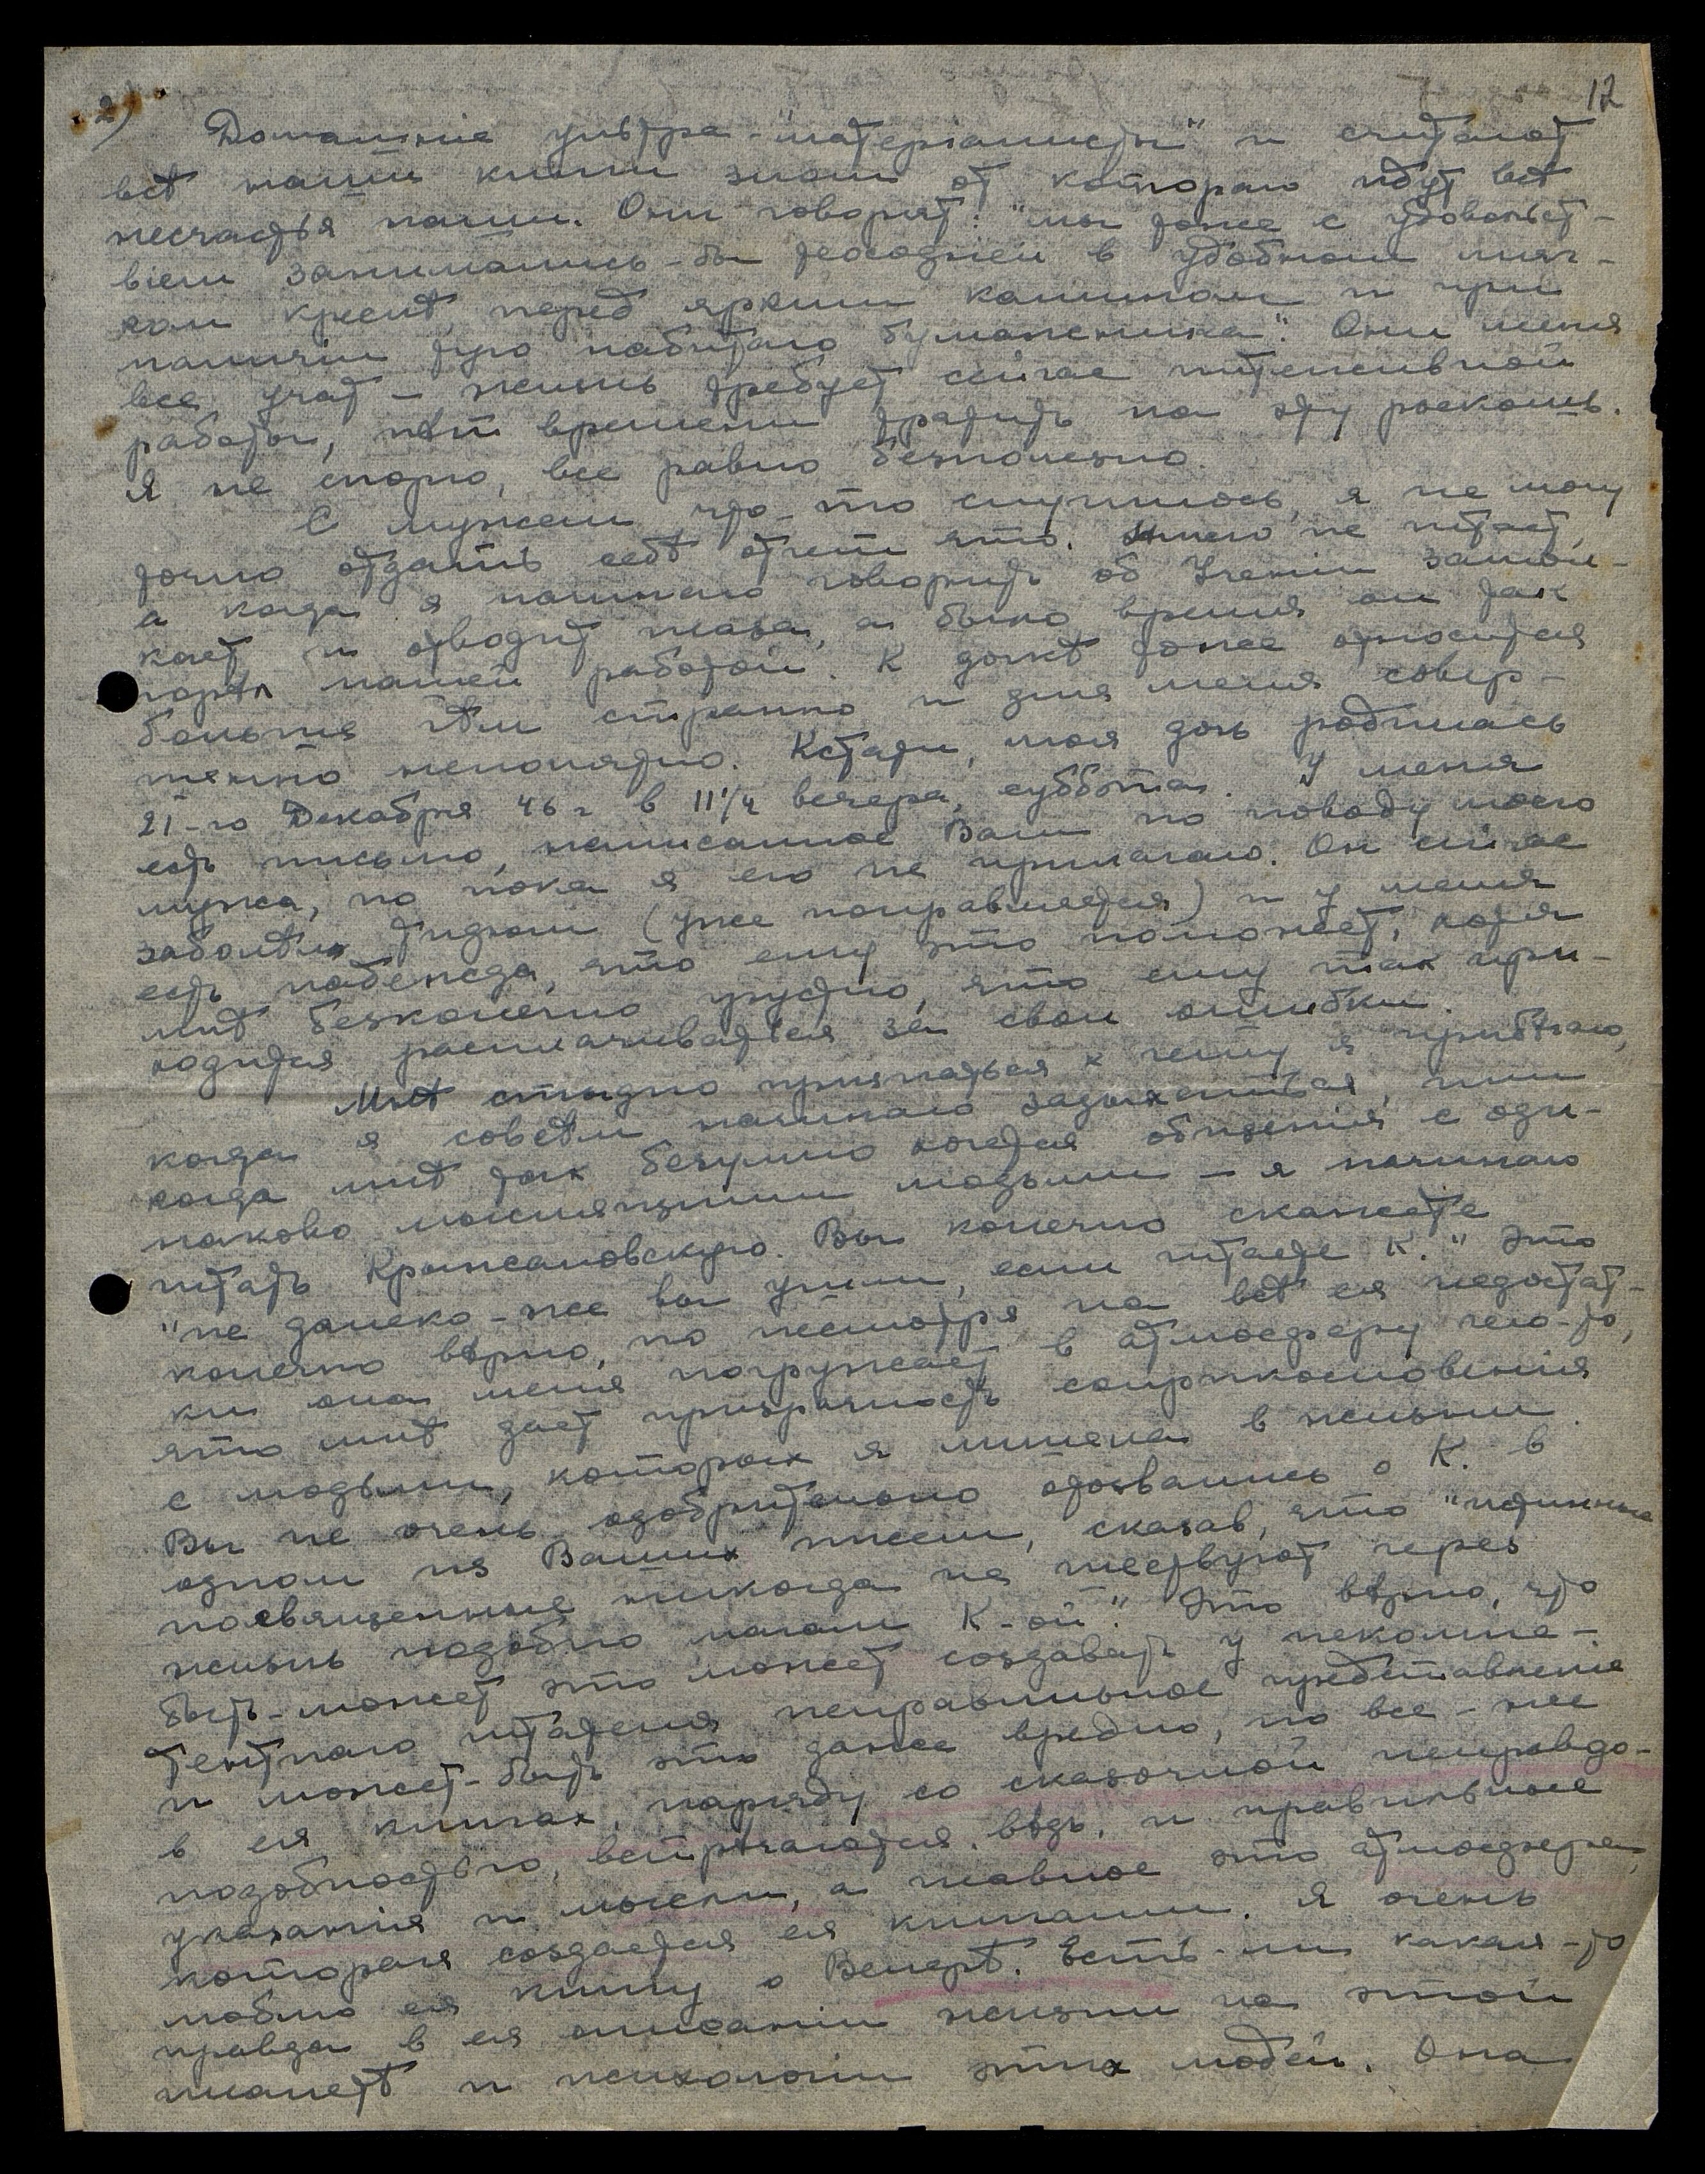 2)
12
Домашніе ультра-"матеріалисты" и считают
всѣ наши книги злом от котораго идут всѣ
несчастья наши. Они говорят: "мы тоже с удовольст-
віем занимались-бы теософіей в удобном мяг-
ком креслѣ, перед ярким камином и при
наличіи туго набитаго бумажника". Они меня
все учат - жизнь требует сейчас интенсивной
работы, нѣт времени тратить на эту роскошь.
Я не спорю, все равно безполезно.
С мужем что-то случилось, я не могу
точно отдать себѣ отчет что. Ничего не читает,
а когда я начинаю говорить об Ученіи замол-
кает и отводит глаза, а было время он так
горѣл нашей работой. К дочкѣ тоже относится
больше чѣм странно и для меня совер-
шенно непонятно. Кстати, моя дочь родилась
21-го Декабря 46 г в 11¼ вечера, суббота. У меня
есть письмо, написанное Вам по поводу моего
мужа, но пока я его не прилагаю. Он сейчас
заболѣл тифом (уже поправляется) и у меня
есть надежда, что ему это поможет, хотя
мнѣ безконечно грустно, что ему так при-
ходится расплачиваться за свои ошибки.
Мнѣ стыдно признаться к чему я прибѣгаю,
когда я совсѣм начинаю задыхаться, или
когда мнѣ так безумно хочется общенія с оди-
наково мыслящими людьми - я начинаю
читать Крыжановскую. Вы конечно скажете
"не далеко-же вы ушли, если читаете К." Это
конечно вѣрно, но несмотря на всѣ ея недостат-
ки она меня погружает в атмосферу чего-то,
что мнѣ дает призрачность соприкосновенія
с людьми, которых я лишена в жизни.
Вы не очень одобрительно отозвались о К. в
одном из Ваших писем, сказав, что "истинные
посвященные никогда не шествуют через
жизнь подобно магам К-ой". Это вѣрно, что
быть-может это может создавать у некомпе-
тентнаго читателя неправильное представленіе
и может-быть это даже вредно, но все-же
в ея книгах, наряду со сказочной неправдо-
подобностью, встрѣчаются, вѣдь, и правильные
указанія и мысли, а главное это атмосфера,
которая создается ея книгами. Я очень
люблю ея книгу о Венерѣ. Есть-ли какая-то
правда в ея описаніи жизни на этой
планетѣ и психологіи этих людей. Она